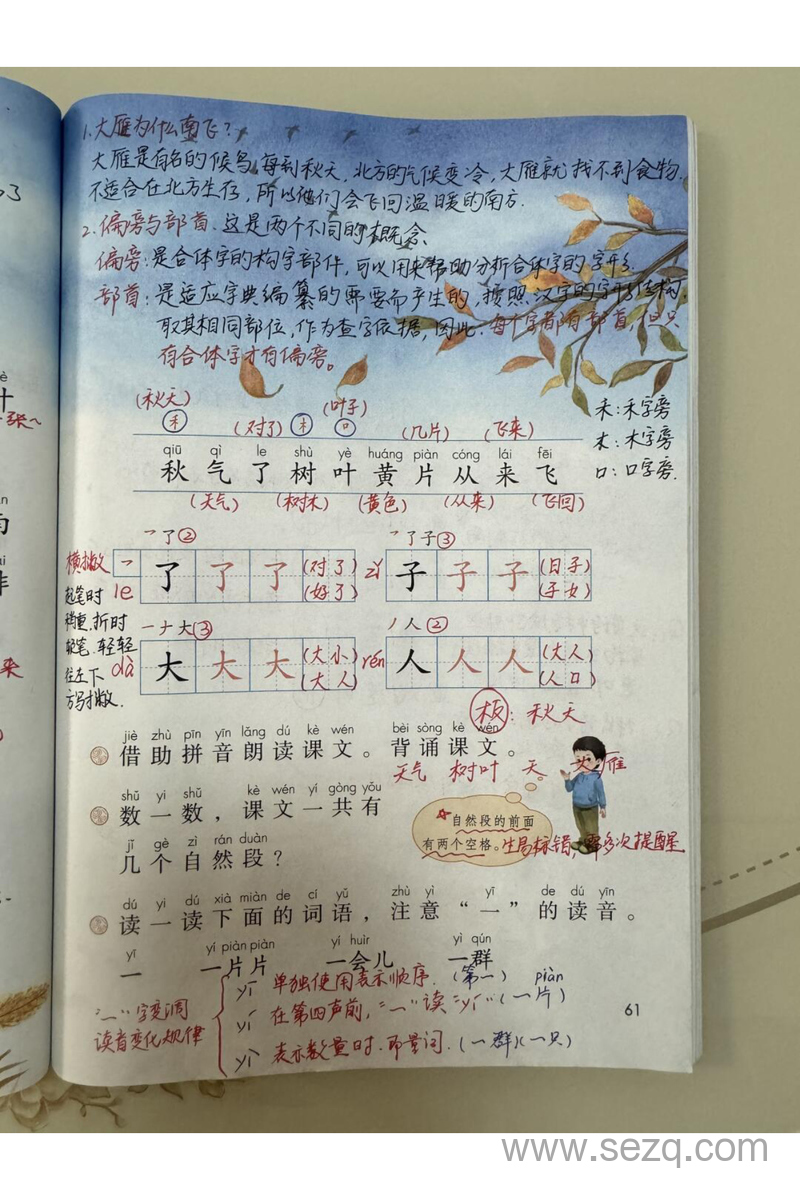 1.大雁为什么南飞？
大雁是有名的候鸟,每到秋天,北方的气候变冷,大雁就找不到食物.
不适合在北方生存,所以他们会飞回温暖的南方.
2.偏旁与部首.这是两个不同的概念.
偏旁:是合体字的构字部件,可以用来帮助分析合体字的字形.
部首:是适应字典编纂的需要而产生的,按照汉字的字形结构.
取其相同部位,作为查字依据,因此.每个字都有部首,但只
有合体字才有偏旁。
(秋天) (叶子)
禾 (对了) 木 口 (几片) (飞来)
禾:禾字旁
木:木字旁
口:口字旁.
qiū qì le shù yè huáng piàn cóng lái fēi
秋 气 了 树 叶 黄 片 从 来 飞
(天气) (树木) (黄色) (从来) (飞回)
一了② 一了子③
横撇 一 了 了 了 (对了) zǐ 子 子 子 (日子)
le (好了) (子女)
起笔时
稍重.折时
轻笔.轻轻
往左下
方撇.
一ナ大③ ノ人②
dà 大 大 大 (大小) rén 人 人 人 (大人)
(大人) (人口)
板:秋天
jiè zhù pīn yīn lǎng dú kè wén bèi sòng kè wén
借助拼音朗读课文。背诵课文。
天气 树叶 天 大雁
shǔ yi shǔ kè wén yí gòng yǒu
数一数，课文一共有
jǐ gè zì rán duàn
几个自然段？
自然段的前面
有两个空格。生易标错,需多次提醒
dú yi dú xià miàn de cí yǔ zhù yì yī de dú yīn
读一读下面的词语，注意“一”的读音。
yī yí piàn piàn yí huìr yì qún
一 一片片 一会儿 一群
"一"字变调
读音变化规律
yī 单独使用表示顺序.(第一) piàn
yí 在第四声前,"一"读"yí"(一片)
yì 表示数量时.即量词.(一群)(一只)
61
www.sezq.com